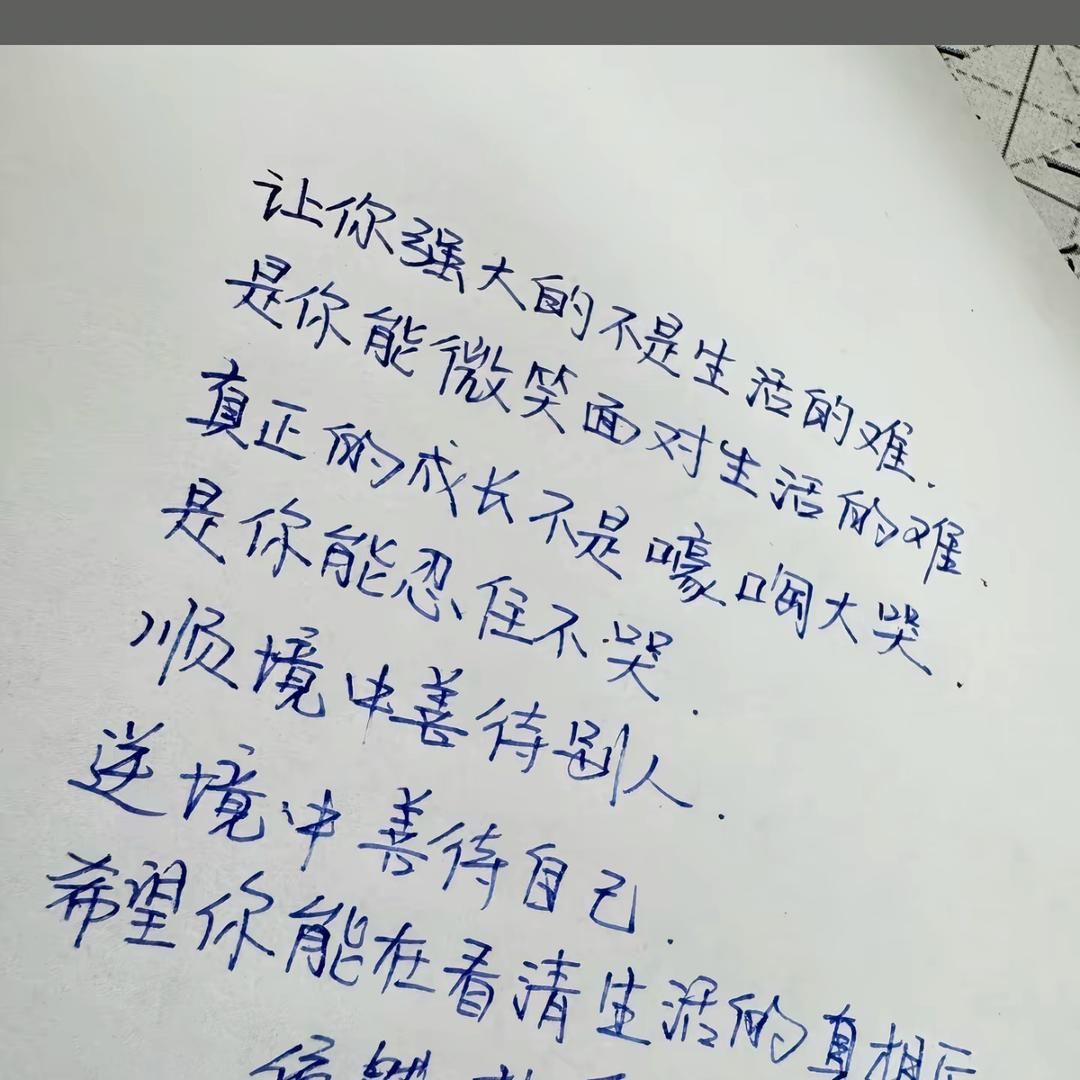 让你强大的不是生活的难.
是你能微笑面对生活的难.
真正的成长不是嚎啕大哭.
是你能忍住不哭.
顺境中善待别人.
逆境中善待自己.
希望你能在看清生活的真相后